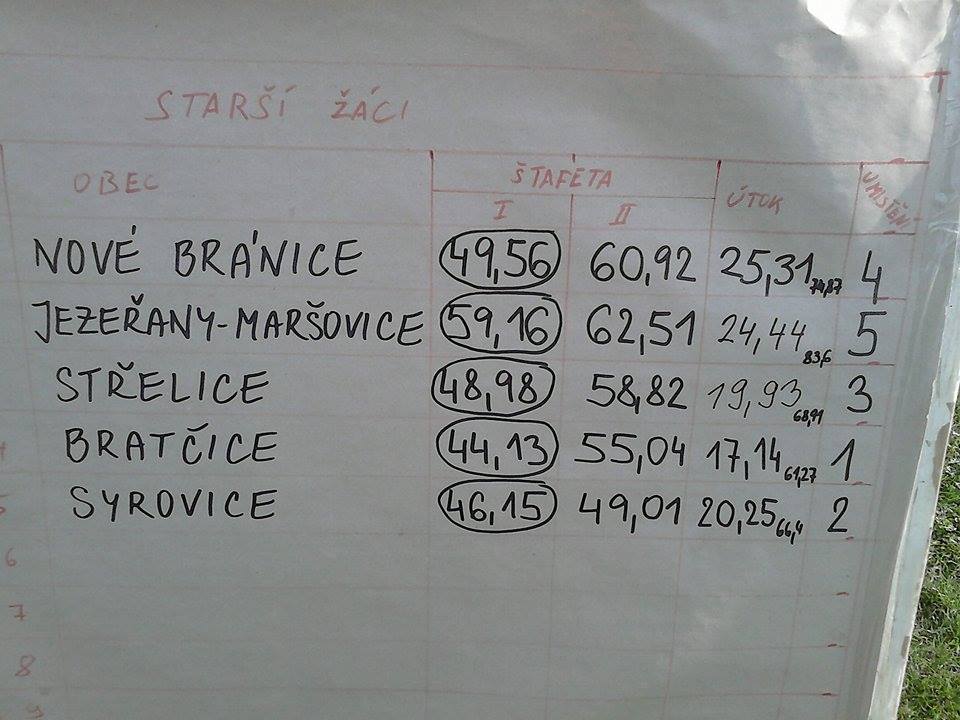 STARŠÍ ŽÁCI
OBEC ŠTAFETA ÚTOK UMÍSTĚNÍ
I II
NOVÉ BRÁNICE 49,56 60,92 25,31 74,87 4
JEZEŘANY-MARŠOVICE 59,16 62,51 24,44 83,6 5
STŘELICE 48,98 58,82 19,93 68,91 3
BRATČICE 44,13 55,04 17,14 61,27 1
SYROVICE 46,15 49,01 20,25 66,4 2
6
7
8
9